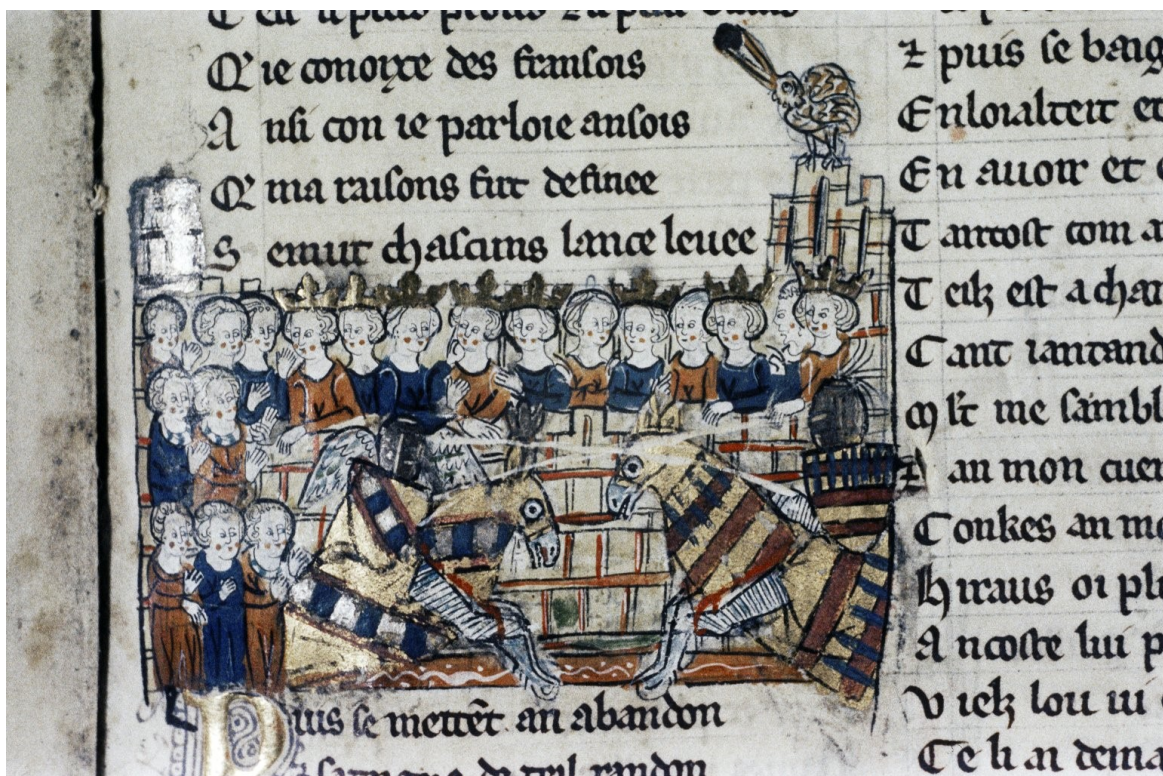 Q'ie conoixe des fransois
Ansi con ie parloie ansois
Q' ma raisons fut definee
Semut chascuns lance levee
Puis se mettēt an abandon
randon
⁊ puis se baig
Enloialteit et
En auoir et
Tantost com a
Teilz est a char
Cant iantand
me sambl
⁊ an mon cuer
Conkes an me
Hiraus oi plu
Ancoste lui p
Vielz lou ui
Ce li ai dema